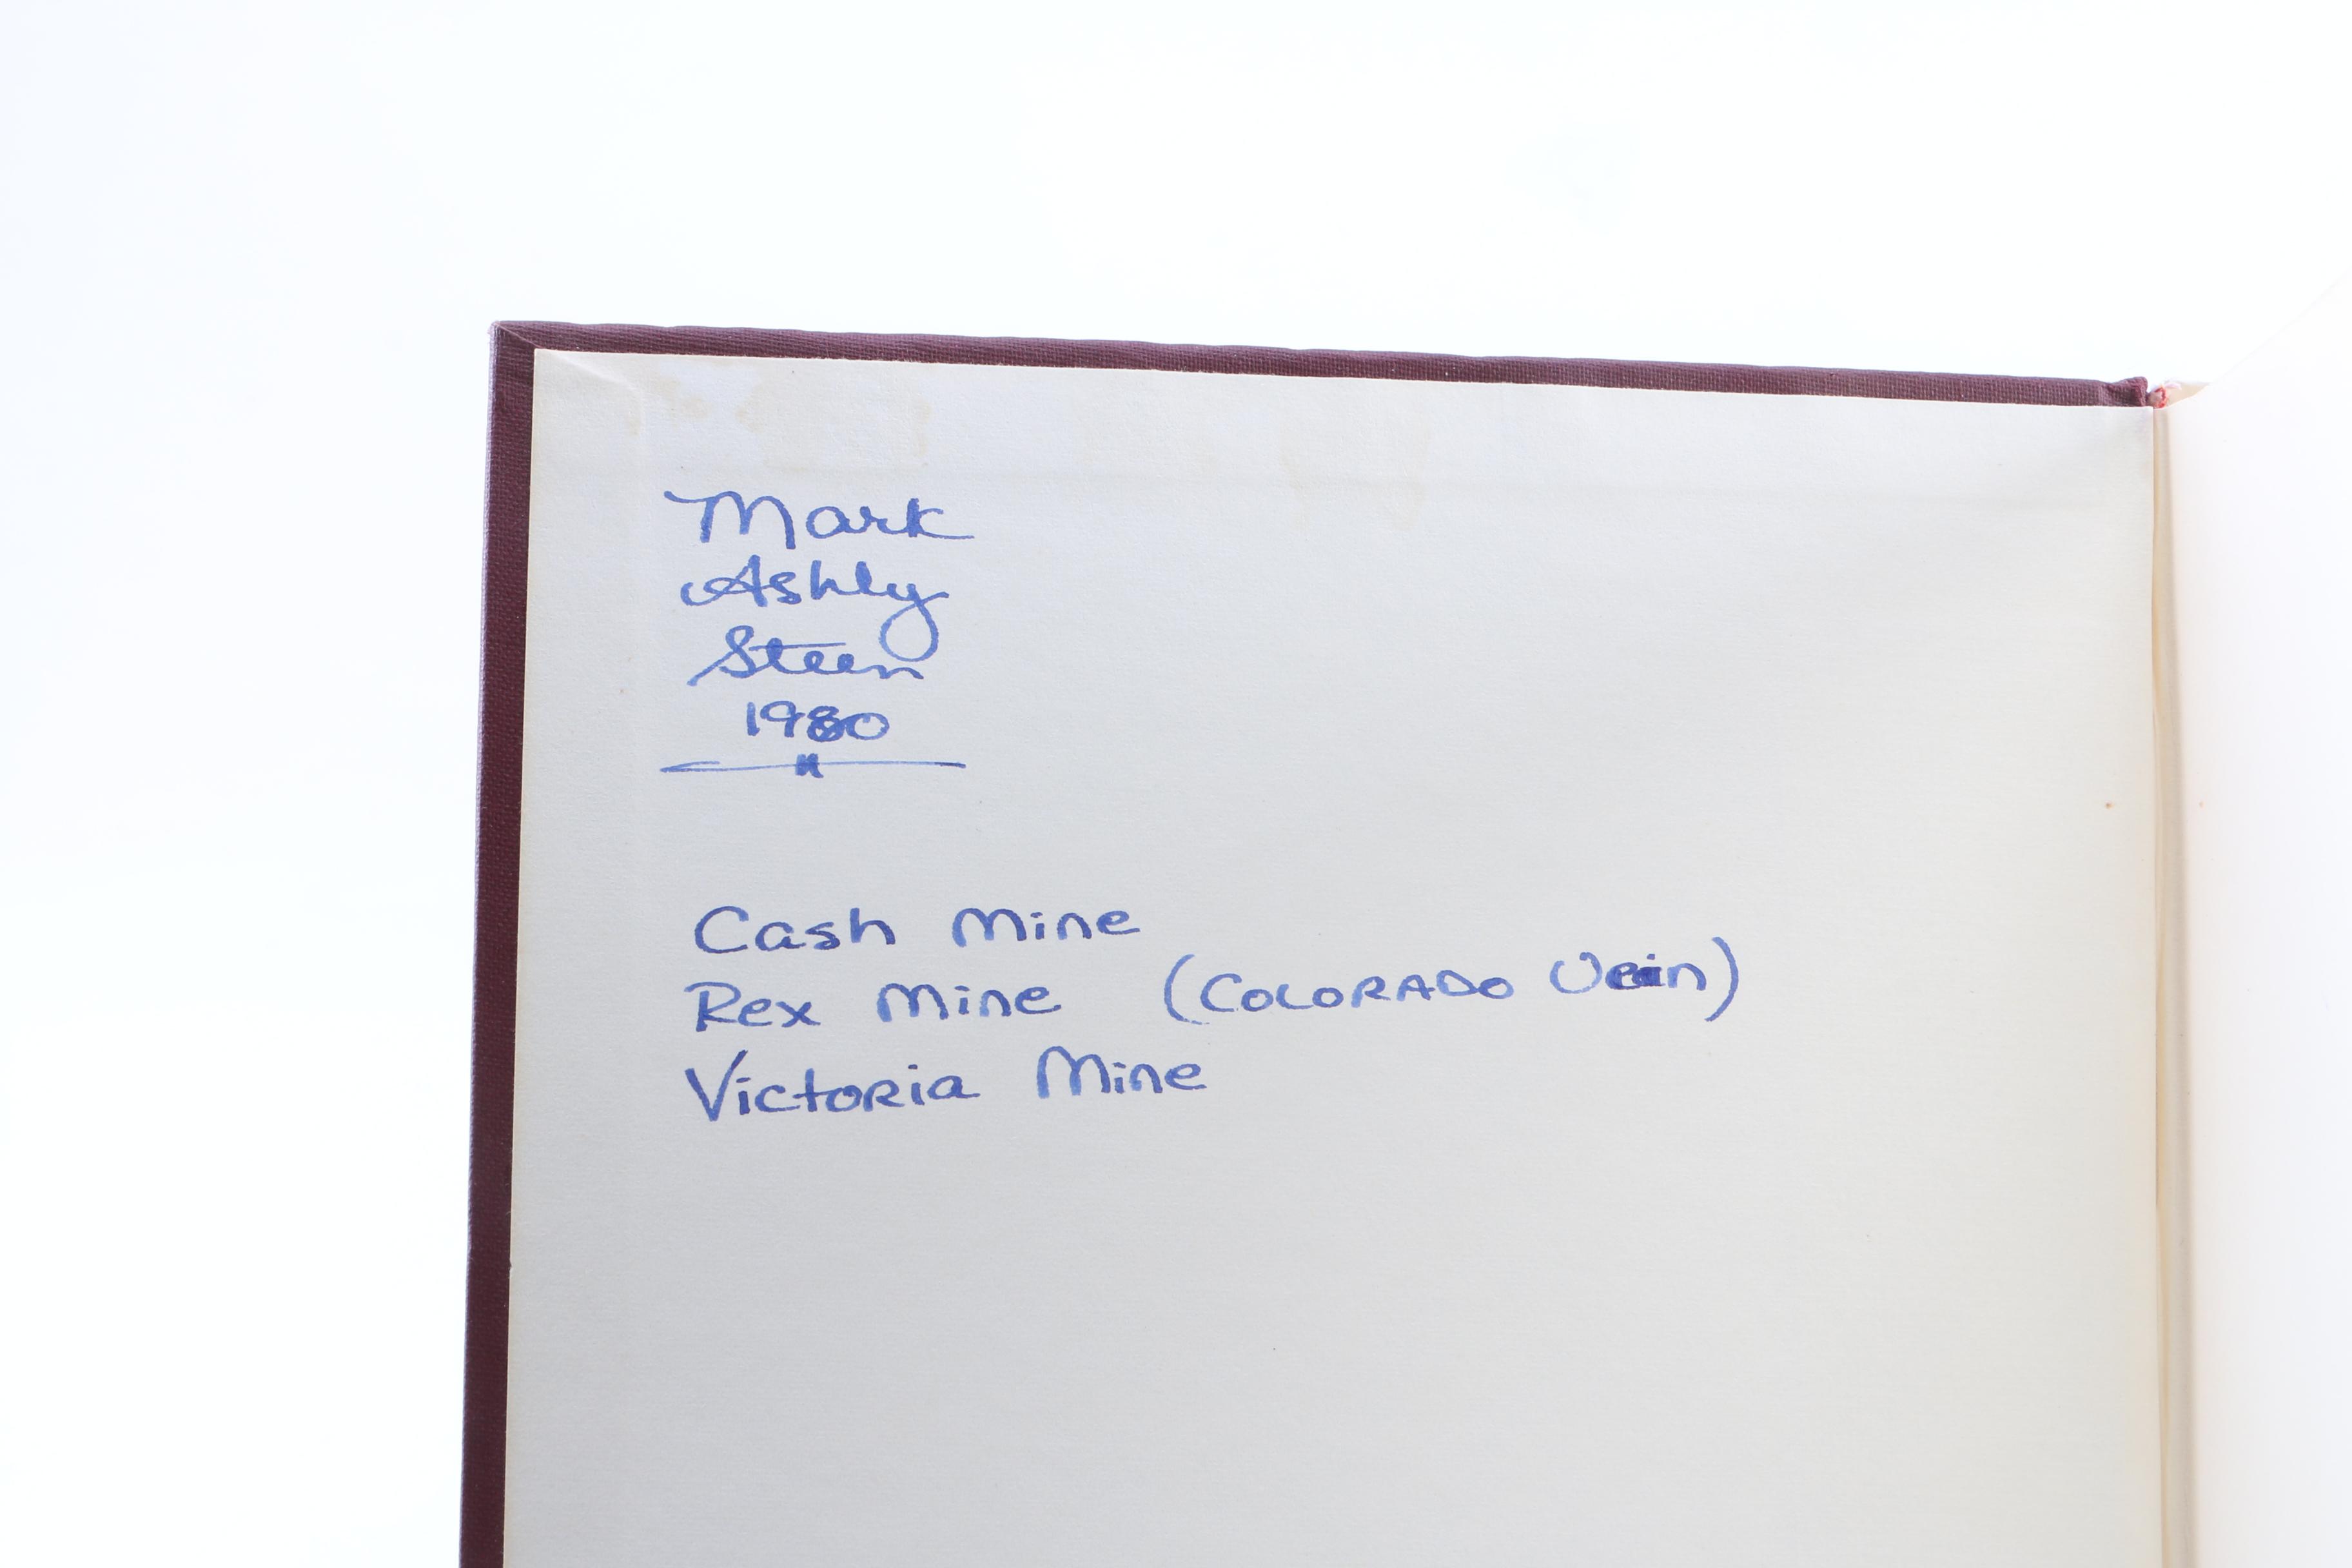 Mark
Ashly
Steen
1980
Cash Mine
Rex Mine (COLORADO Vein)
Victoria Mine